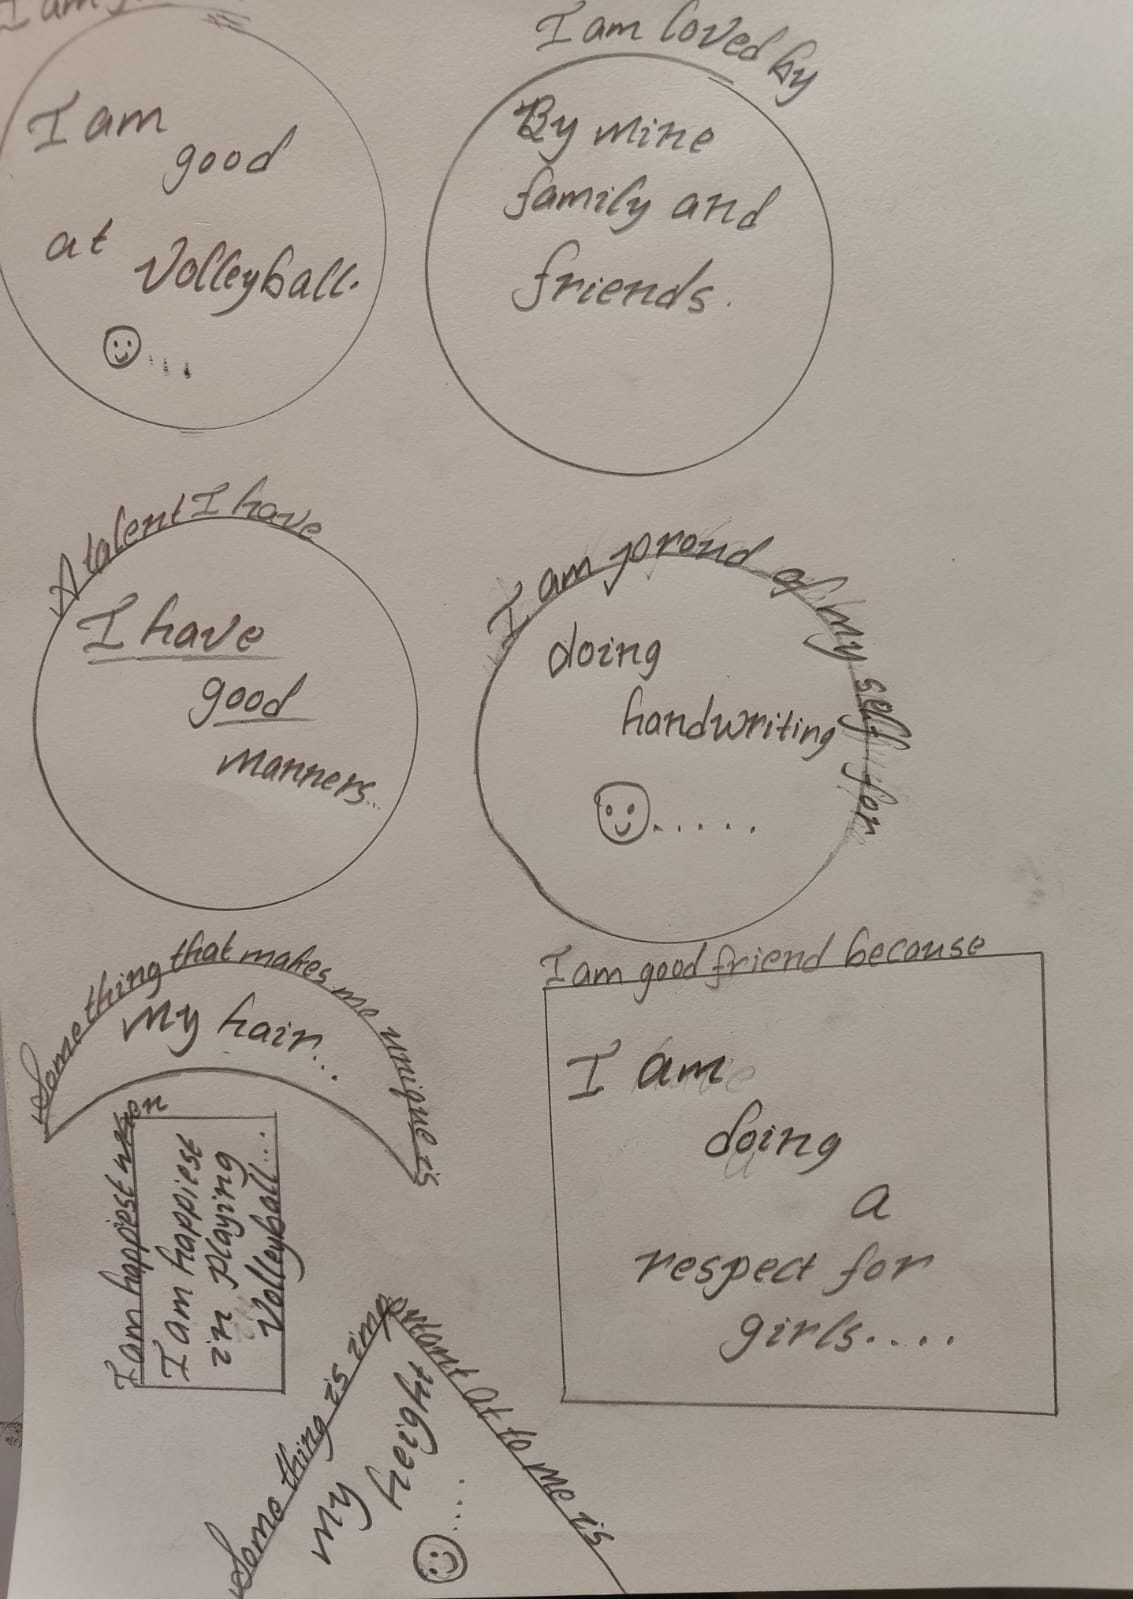 I am
I am
good
at Volleyball.
I am loved by
By mine
family and
friends.
A talent I have
I have
good
manners...
I am proud of my self for
doing
handwriting
.....
Some thing that makes me unique is
My hair...
I am good friend because
I am
doing
a
respect for
girls....
I am happiest when
I am happiest
in playing
Volleyball...
Some thing is important at to me is
my
height
....